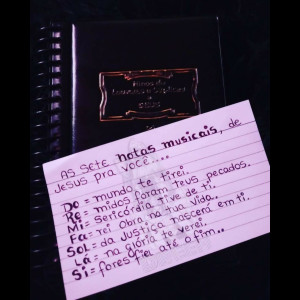 Hinos de
Louvores e Súplicas
a
DEUS
As sete notas musicais, de
Jesus pra você....
DO = mundo te tirei.
RE = midos foram teus pecados.
Mi = sericórdia tive de ti.
Fa = rei Obra na tua vida..
SOL = da Justiça nascerá em ti.
Lá = na glória te verei.
Si = fores fiel até o fim..